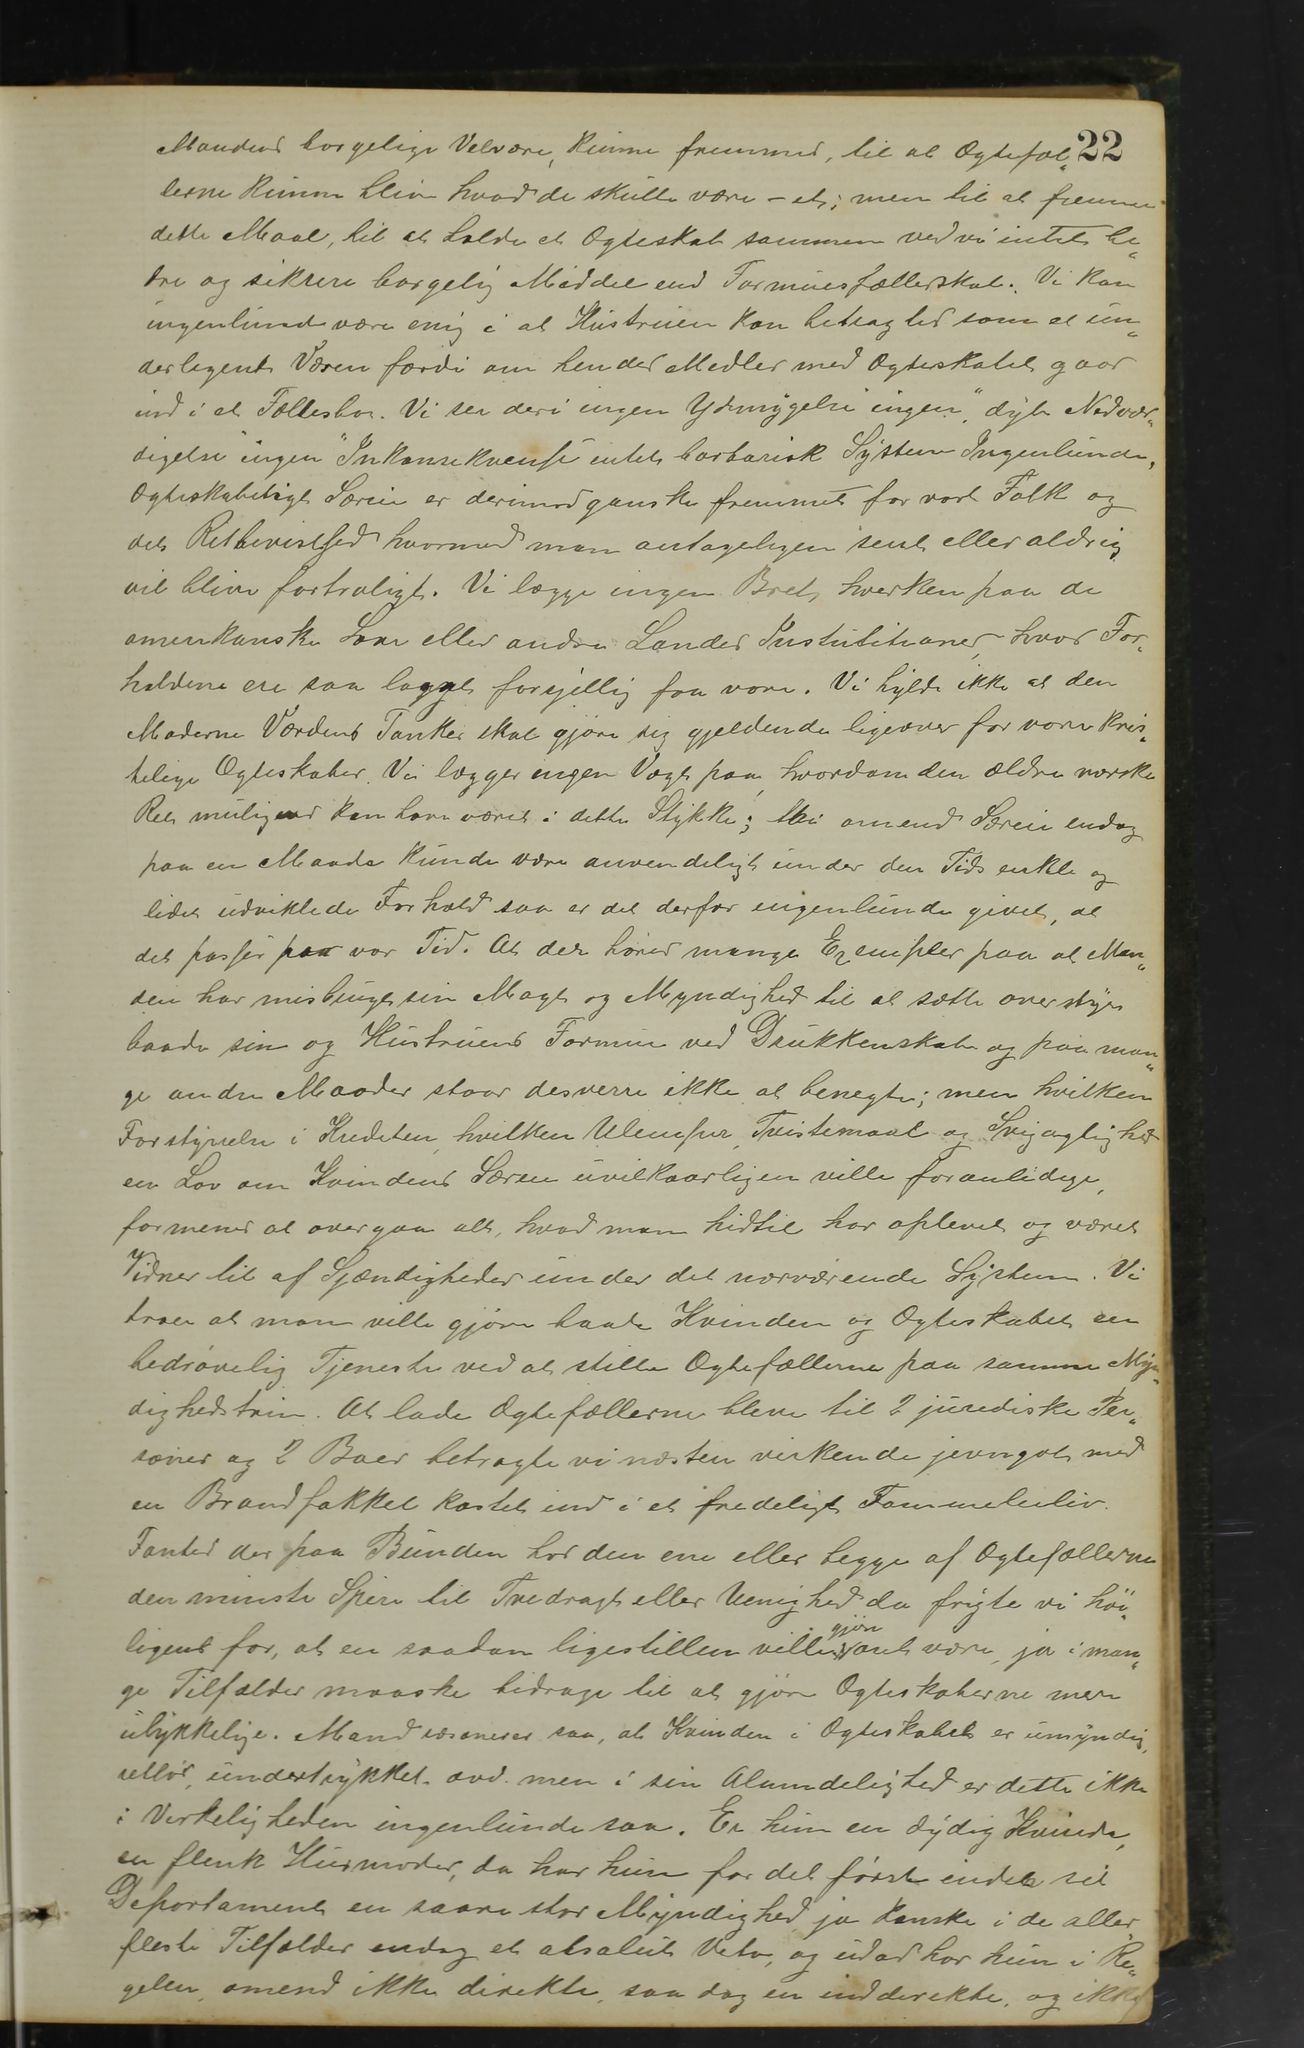 22
Mandens borgelige Velvære, kunne fremmes, til at Ogtefæl„
lerne kunne blive hvad de skulle være - et; men til at fremme
dette Maal, til at holde et Ogteskab sammen ved vi intet be„
dre og sikrere borgelig Middel end Formuesfællerskab. Vi kan
ingenlunde være enig i at Hustruen kan betragtes som et un„
derlegent Væsen fordi om hendes Medler med Ogteskabet gaar
ind i et Fællesbo. Vi ser deri ingen Ydmygelse ingen „dyb Nedvær„
digelse" ingen "Inkonsekvense intet barbarisk System Ingenlunde,
Ogteskabeligt Særeie er derimod ganske fremmet for vort Folk og
dets Retbevisthed hvormed man antageligen sent eller aldrig
vil blive fortroligt. Vi lægge ingen Bret hverken paa de
amerikanske Love eller andre Landes Institutioner, hvor For„
holdene ere saa langt forsjellig fra vore. Vi hylde ikke at den
Moderne Verdens Tanker skal gjøre sig gjeldende ligeover for vore kris„
telige Ogteskaber. Vi lægger ingen Vægt paa, hvordan den ældre norske
Ret muligens kan have været i dette Stykke; thi omend Særeie endog
paa en Maade kunde være anvendeligt under den Tids enkle og
lidet udviklede Forhold saa er det derfor engenlunde givet, at
det passer paa vor Tid. At der høres mange Exempler paa at Man„
den har misbrugt sin Magt og Myndighed til at sætte overstyr
baade sin og Hustruens Formue ved Drukkenskab og paa man„
ge andre Maader staar desverre ikke at benegte; men hvilken
Forstyrelse i Krediten, hvilken Ulemper, Tvistemaal og Svigagtighed
en Lov om Kvindens Særeie uvilkaarligen ville foranledige,
formenes at overgaa alt, hvad man hidtil har oplevet og været
Vidner til af Sjændigheder under det nærværende System. Vi
troer at man ville gjøre baade Kvinden og Ogteskabet een
bedrøvelig Tjeneste ved at stille Ogtefællerne paa samme Myn„
dighedstrin. At lade Ogtefællerne bleve til 2 jurediske Per„
soner og 2 Boer betragte vi næsten virkende jevngot med
en Brandfakkel kastet ind i et fredeligt Fammelieliv.
Fantes der paa Bunden hos den ene eller begge af Ogtefællerne
den minste Spire til Tvedragt eller Uenighed da frygte vi høi„
ligens for, at en saadan ligestillen ville gjøre ondt være, ja i man„
ge Tilfælder maaske bidrage til at gjøre Ogteskaberne mere
ulykkelige. Mand resonerer saa, at Kvinden i Ogteskabet er umyndig,
retløs, undertrykket osv. men i sin Alumdelighed er dette ikke
i Verkeligheden ingenlunde saa. Er hun en dydig Kvinde,
en flenk Husmoder, da har hun for det første indets sit
Departament en saare stor Myndighed, ja kanske i de aller„
fleste Tilfælder endog et absolut Veto, og udad har hun i Re„
gelen, omend ikke direkte, saa dog en indderekte, og ikke